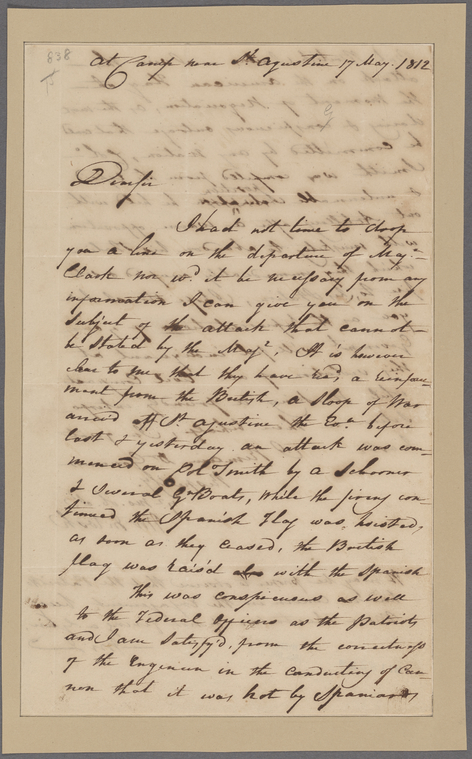 838
At Camp near St. Agustine 17 May. 1812
Dearsir
I had not time to drop
you a line on the departure of Maj.
Clark nor wd. it be necessary from any
information I can give you on the
subject of the attack that cannot
be stated by the Majr. It is however
clear to me that they have recd a reinforce
ment from the British, a Sloop of War
arrivd off St. Agustine the Eve. before
last & yesterday an attack was com
menced on Col Smith by a Schooner
& Several G. Boats, while the firing con
tinued the Spanish Flag was hoisted,
as soon as they ceased, the British
flag was Rais'd also with the Spanish
This was conspicuous as well
to the Federal Officers as the Patriots
and I am Satisfy'd, from the correctness
of the Engineer in the conducting of Can
non that it was not by Spaniards